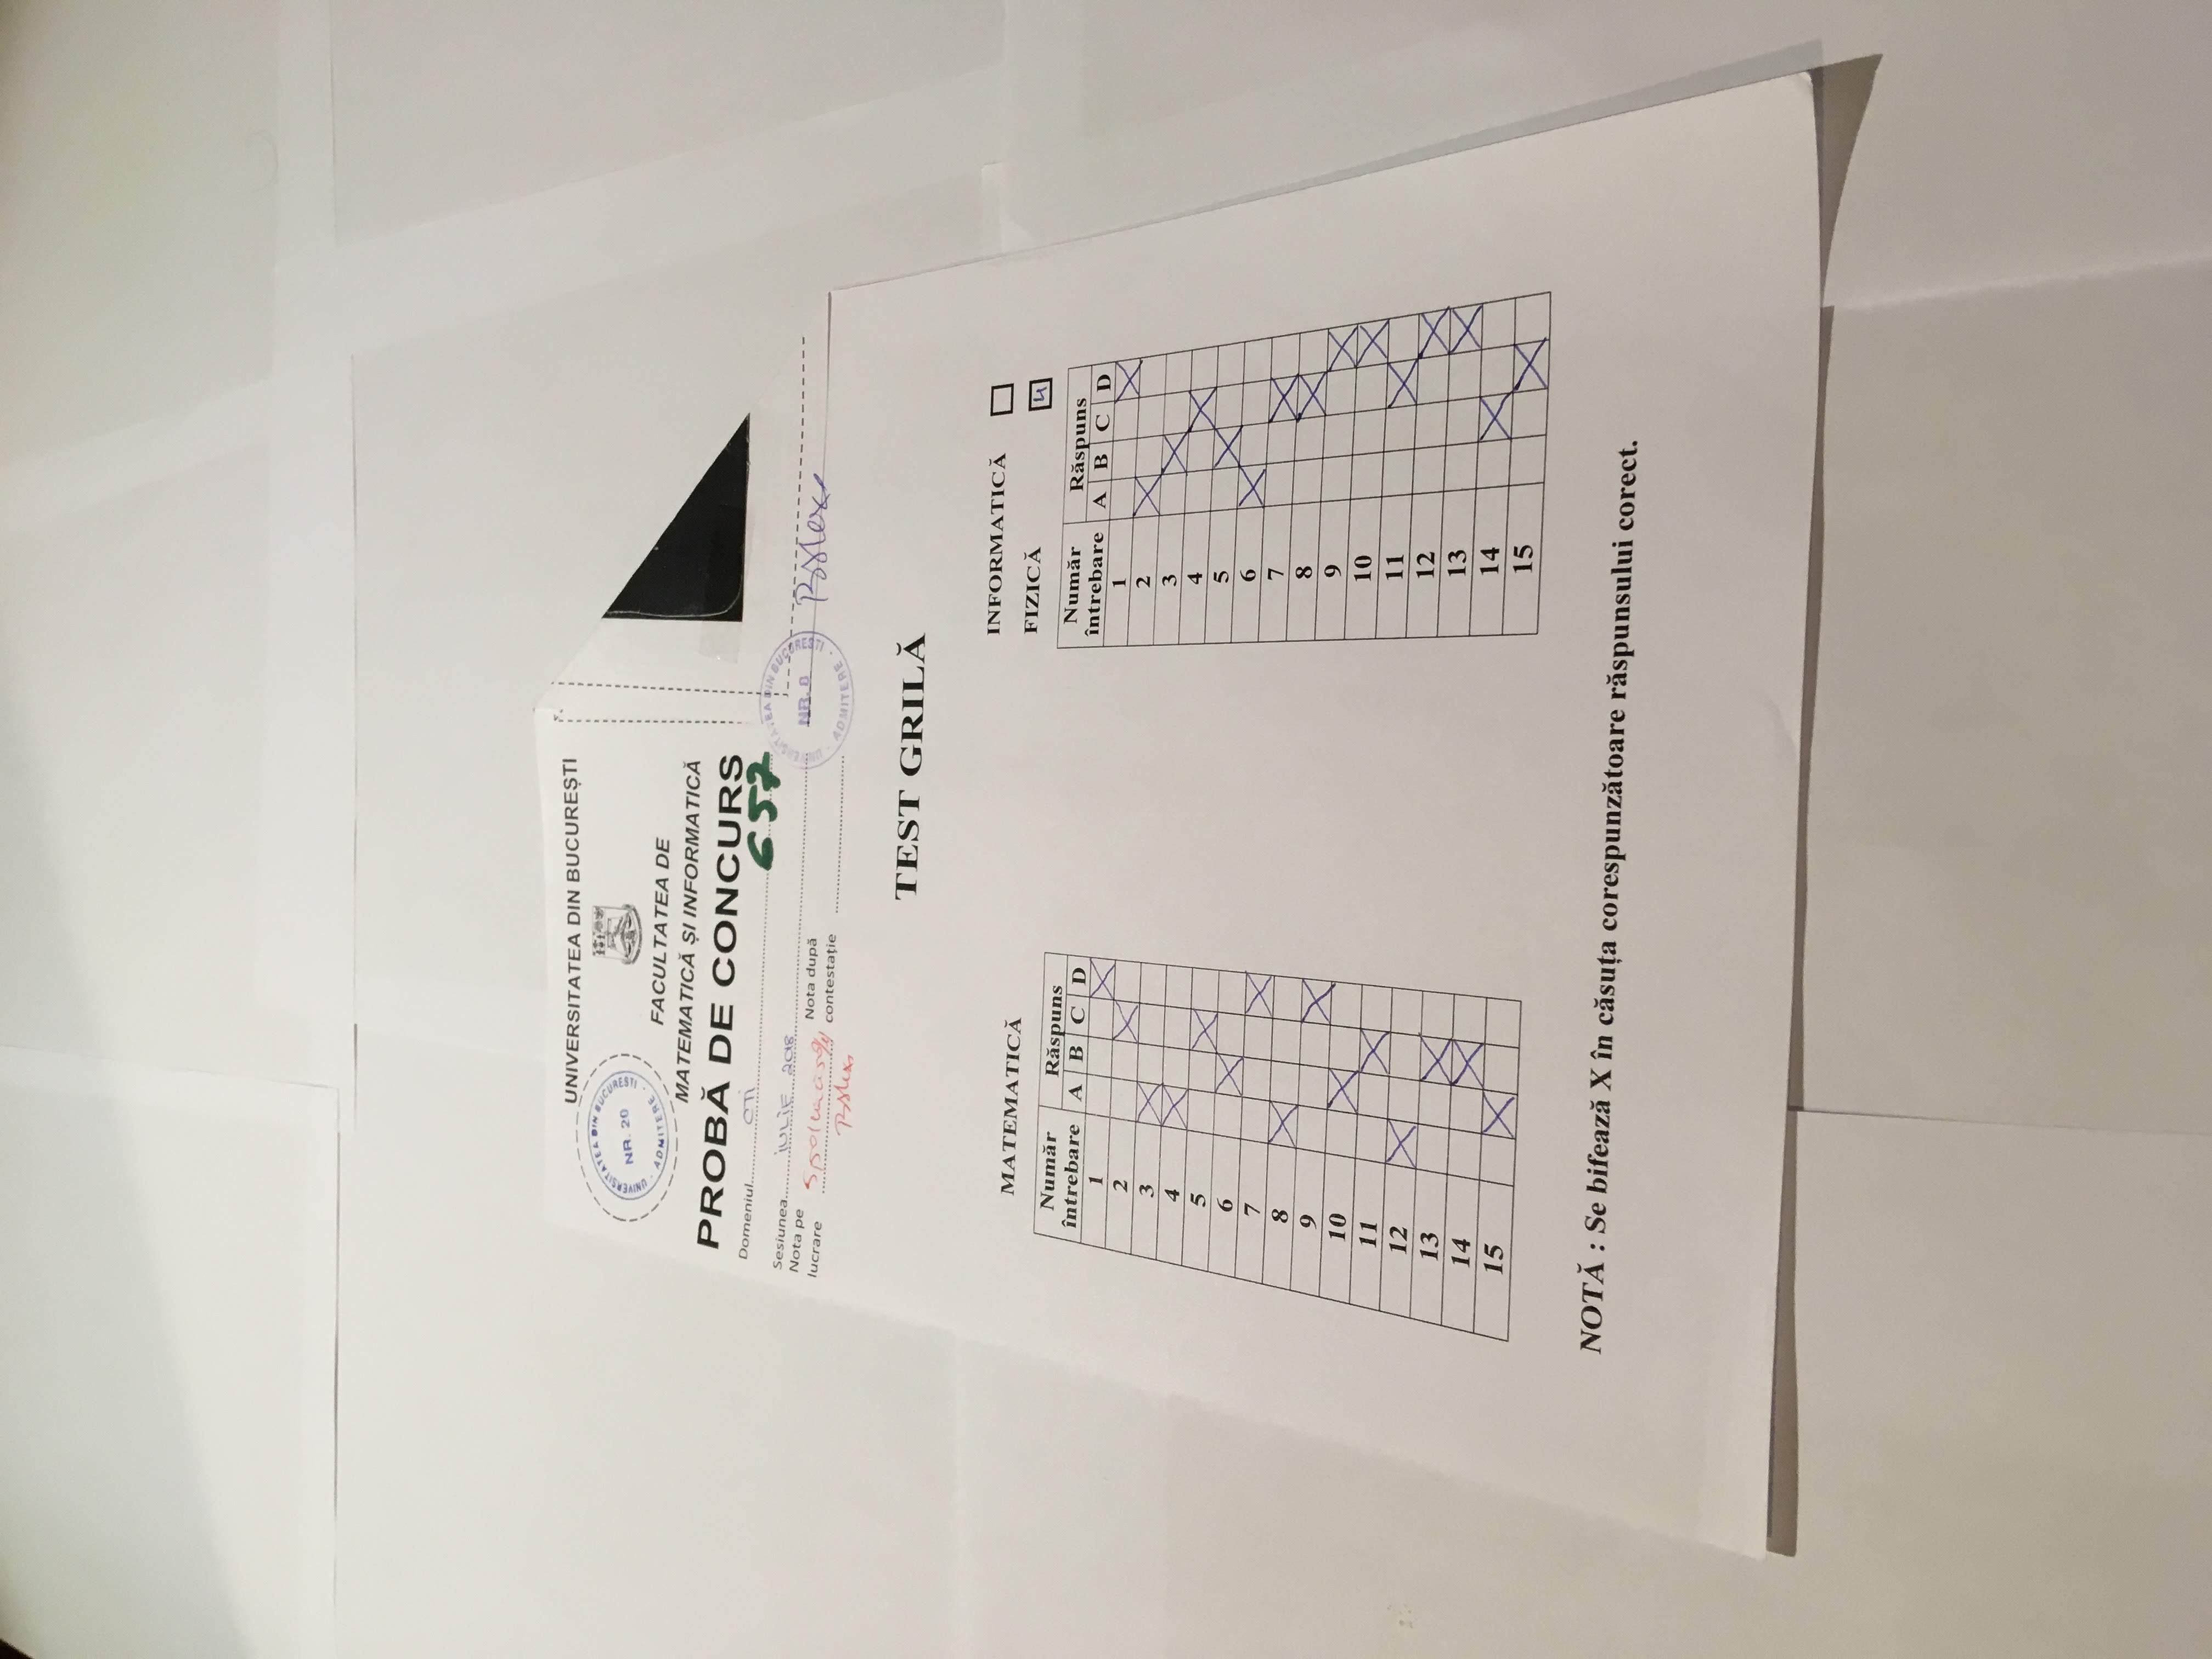 UNIVERSITATEA DIN BUCUREȘTI
UNIVERSITATEA DIN BUCURESTI
NR. 20
ADMITERE
FACULTATEA DE
MATEMATICĂ ȘI INFORMATICĂ
PROBĂ DE CONCURS
Domeniul CTI
657
Sesiunea IULIE 2018
Nota pe lucrare
Nota după contestație
UNIVERSITATEA DIN BUCURESTI
NR. 8
ADMITERE
TEST GRILĂ
MATEMATICĂ
Număr întrebare Răspuns
A B C D
1 X
2 X
3 X
4 X
5 X
6 X
7 X
8 X
9 X
10 X
11 X
12 X
13 X
14 X
15 X
INFORMATICĂ
FIZICĂ 4
Număr întrebare Răspuns
A B C D
1 X
2 X
3 X
4 X
5 X
6 X
7 X
8 X
9 X
10 X
11 X
12 X
13 X
14 X
15 X
NOTĂ : Se bifează X în căsuța corespunzătoare răspunsului corect.